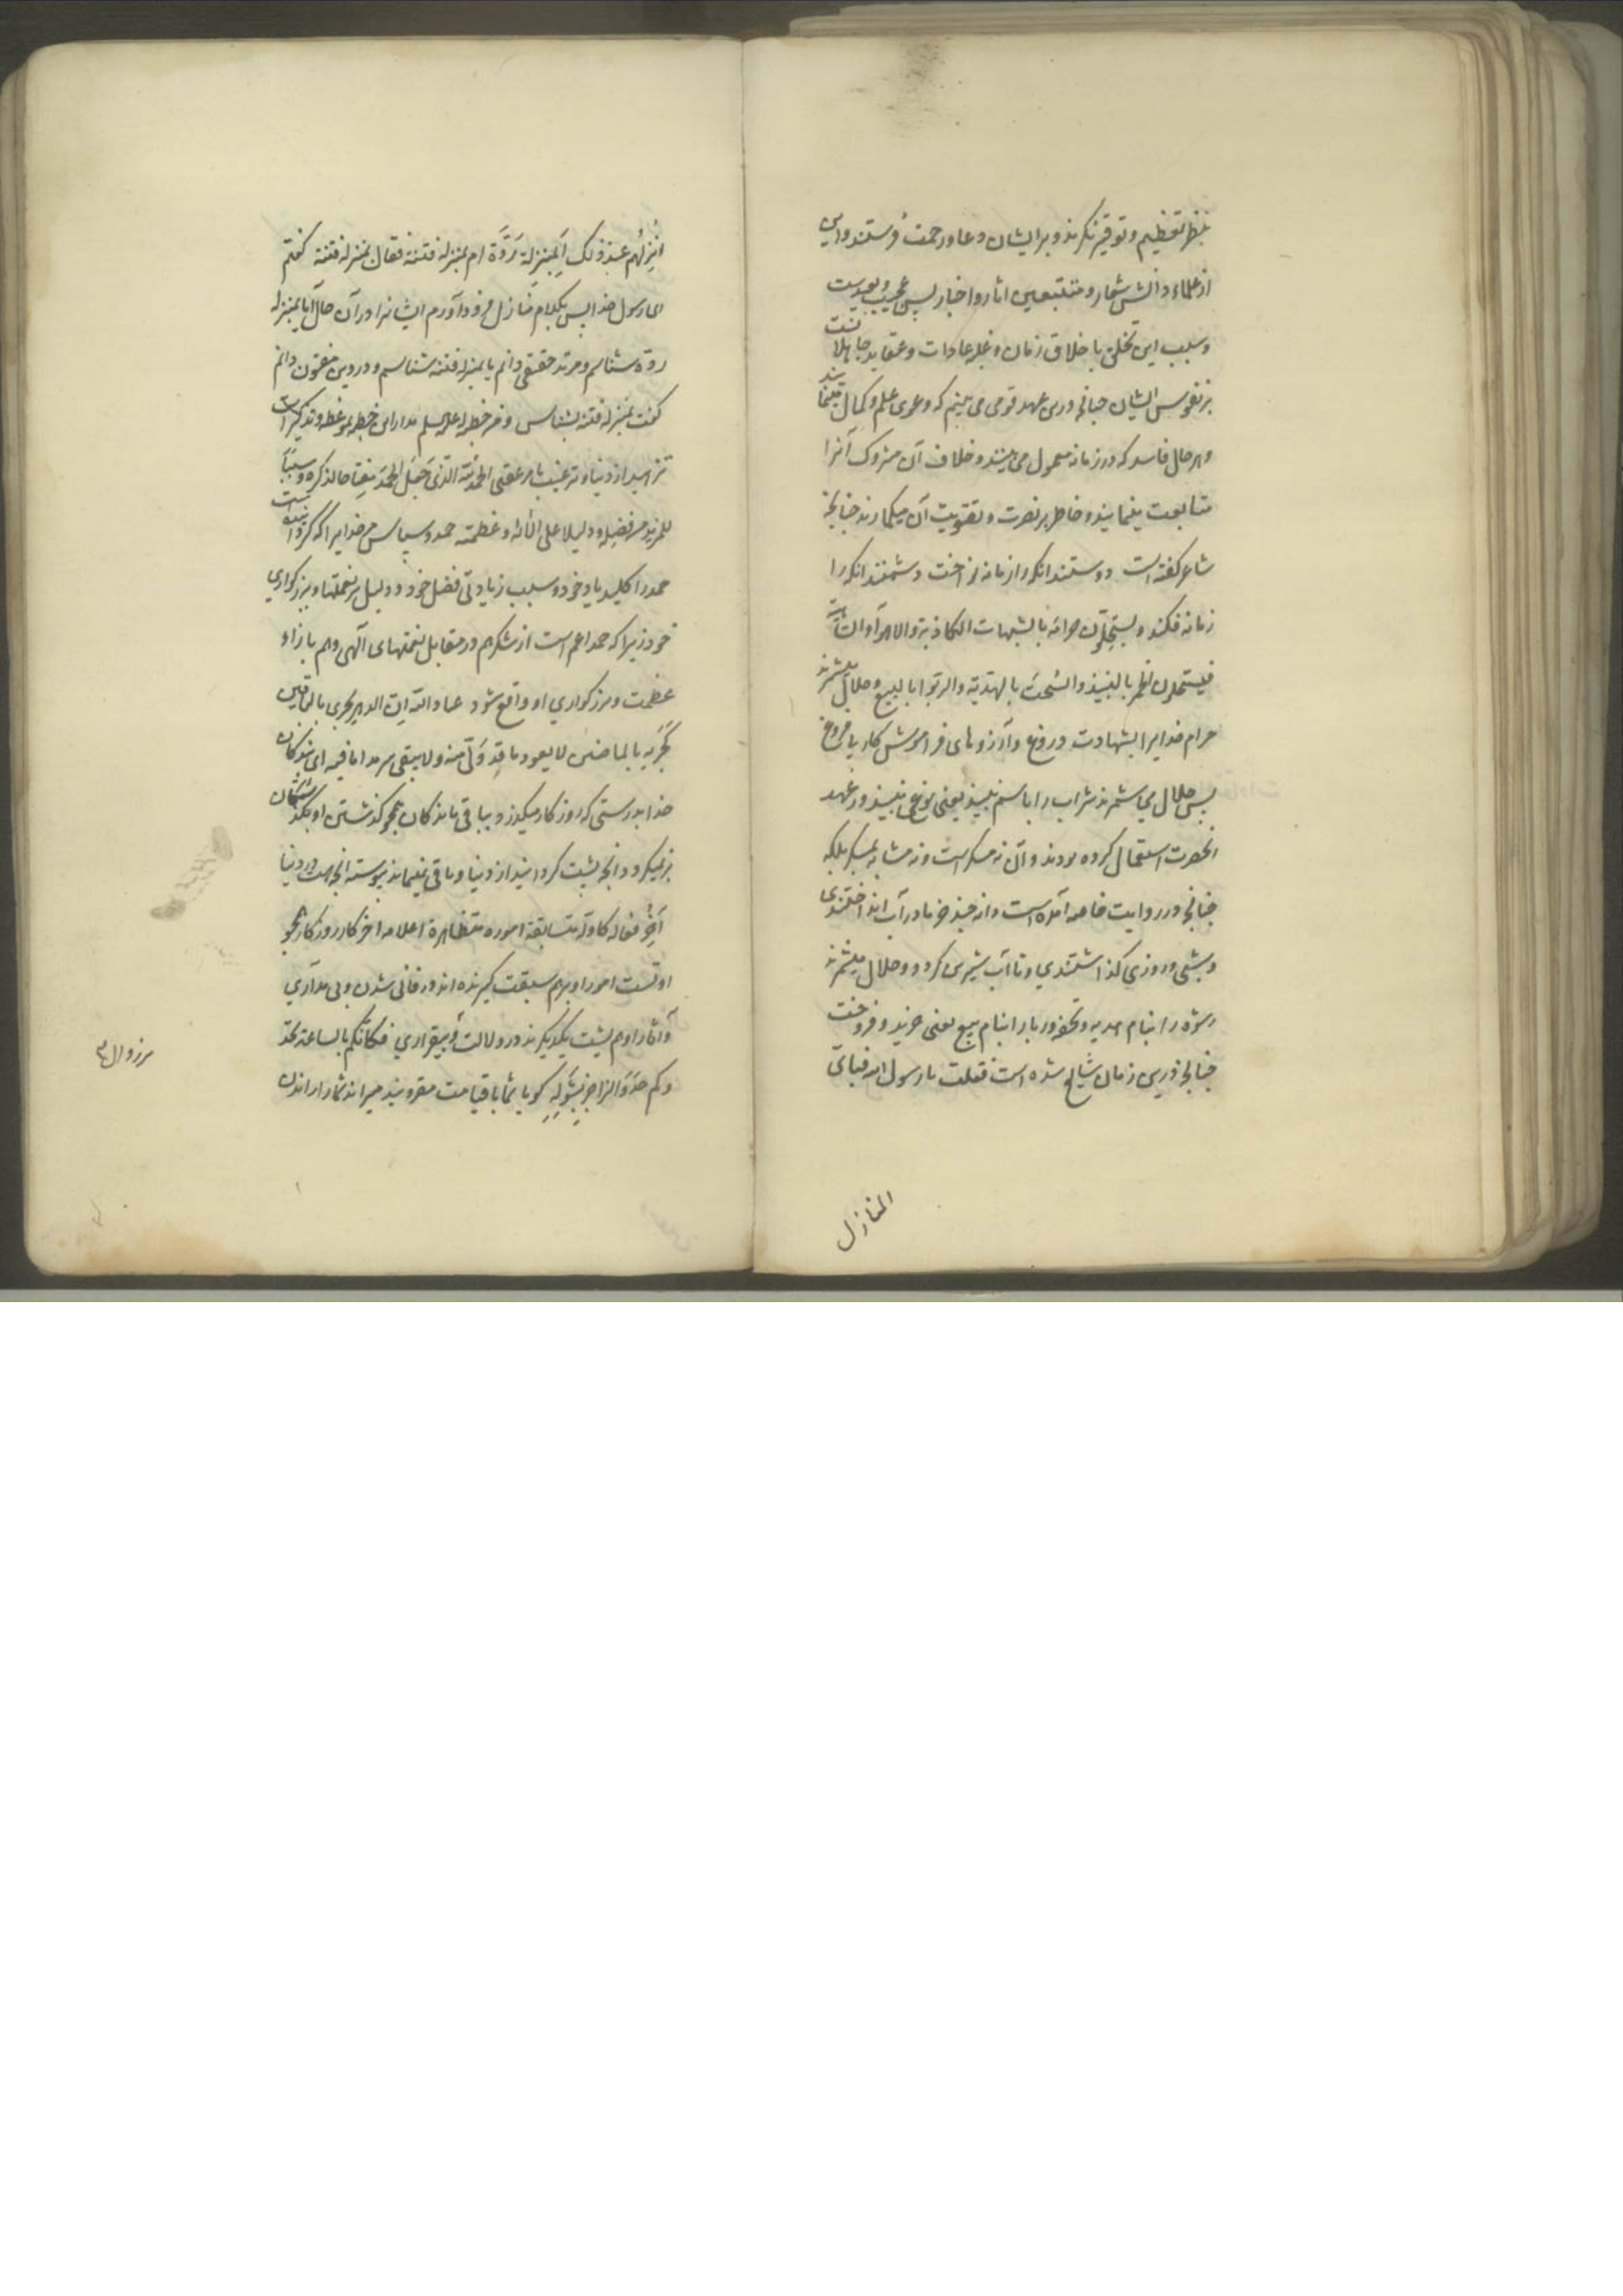 بنظر تعظیم و توقیر نکرند و بر ایشان دعا و رحمت فرستند و این
از علماء دانش شعار و متتبعین اثار و اخبار بسی عجیب و بعیدست
و سبب این تخلق باخلاق زمان و غلبه عادات و عقاید جاهلانست
بر نفوس ایشان چنانچه درین عهد قومی می بینم که دعوی علم و کمال مینمایند
و هر حال فاسد که در زمانه معمول می بینند و خلاف آن متروک آنرا
متابعت ینمایند و خاطر بر نصرت و تقویت آن میکمارند چنانچه
شاعر کفته است دوستند انکه را زمانه نواخت دشمنند انکه را
زمانه فکند و یستحلون حرامه بالشبهات الکاذبة والاهواء الساهیة
فیستحلون الخمر بالنبیذ والسحت بالهدیة والربوا بالبیع و حلال میشمرند
حرام خدایرا بشهادت دروغ و آرزوهای فراموش کار یا فروغ
پس حلال می شمرند شراب را باسم نبیذ یعنی نوعی نبیذ در عهد
انحضرت استعمال کرده بودند و آن نه مسکر است و نه مشابه بمسکر بلکه
چنانچه در روایت خاصه آمده است دانه چند خرما در آب انداختندی
و شبی و روزی کذاشتندی و تا آب شیرین کردد و حلال میشمرند
رشوه را بنام هدیه و تحفه و ربا را بنام بیع یعنی خرید و فروخت
چنانچه درین زمان شایع شده است فقلت یا رسول الله فبای
المنازل
انزلهم عند ذلک أبمنزلة ردة ام بمنزله فتنة فقال بمنزله فتنة کفتم
ای رسول خدا پس بکدام منازل فرود آورم ایشانرا در آن حال آیا بمنزله
ردة شناسم و مرتد حقیقی دانم یا بمنزله فتنه شناسم و در دین مفتون دانم
کفت بمنزله فتنه بشناس و من خطبه له علیه السلم مدار این خطبه بموعظه و تذکیر است
تزهید از دنیا و ترغیب بامر عقبی الحمد لله الذی جعل الحمد مفتاحا لذکره و سببا
للمزید من فضله و دلیلا علی الائه و عظمته حمد و سپاس مر خدایرا که کردانیده است
حمد را کلید یاد خود و سبب زیادتی فضل خود و دلیل بر نعمتها و بزرکواری
خود زیرا که حمد اعم است از شکر هم در مقابل نعمتهای الهی و هم بازاء
عظمت و بزرکواری او واقع شود عباد الله ان الدهر یجری بالباقین
کجریه بالماضین لا یعود ما قد ولی منه ولا یبقی سرمدا ما فیه ای بندکان
خدا بدرستی که روزکار میکذرد بباقی ماندکان همچو کذشتن او بکذشتکان
بر نمیکردد انچه پشت کردانید از دنیا و باقی نمیماند پیوسته انچه هست در دنیا
آخر فعاله کاوله متسابقة اموره متظاهرة اعلامه اخر کار روزکار همچو
اولست امور او بر هم سبقت کیرنده اند در فانی شدن و بی مداری
و آثار او هم پشت یکدیکرند در دلالت و بیقراری فکانکم بالساعة تحد
وکم حدو الزاجر بشوله کویا شما با قیامت مقرونید میراند شما را راندن